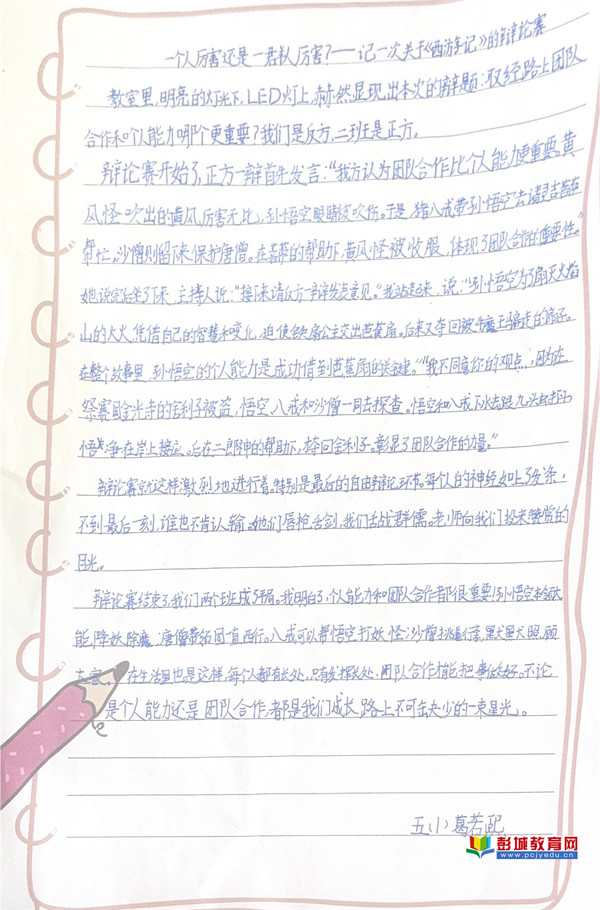 一个人厉害还是一群人厉害?——记一次关于《西游记》的辩论赛
教室里,明亮的灯光下,LED灯上,赫然显现出本次的辩题:取经路上团队
合作和个人能力哪个更重要?我们是反方,二班是正方。
辩论赛开始了,正方一辩首先发言:“我方认为团队合作比个人能力更重要。黄
风怪吹出的黄风厉害无比,孙悟空眼睛被吹伤。于是,猪八戒带孙悟空去请灵吉菩萨
帮忙,沙僧则留下来保护唐僧。在菩萨的帮助下,黄风怪被收服,体现了团队合作的重要性。”
她说完后坐了下来,主持人说:“接下来请反方一辩发表意见。”我站起来,说:“孙悟空为了扇灭火焰
山的大火,凭借自己的智慧和变化,迫使铁扇公主交出芭蕉扇。后来又夺回被牛魔王骗走的扇子。
在整个故事里,孙悟空的个人能力是成功借到芭蕉扇的关键。”“我不同意你的观点,因为在
祭赛国金光寺的宝利子被盗,悟空、八戒和沙僧一同去探查。悟空和八戒下水去跟九头虫打斗
悟净在岸上接应。后在二郎神的帮助下,夺回宝利子。彰显了团队合作的力量。”
辩论赛就这样激烈地进行着。特别是最后的自由辩论环节。每个人的神经如上了发条,
不到最后一刻,谁也不肯认输。她们唇枪舌剑,我们舌战群儒。老师向我们投来赞赏的
目光。
辩论赛结束了,我们两个班成了平局。我明白了,个人能力和团队合作都很重要!孙悟空本领大
能,降妖除魔,唐僧带领团直西行。八戒可以帮悟空打妖怪,沙僧挑着行李,照顾
在生活里也是这样,每个人都有长处,只有发挥长处,团队合作才能把事做好。不论
是个人能力还是团队合作,都是我们成长路上不可缺少的一束星光。
五(1)葛若熙
彭城教育网
www.pcjyedu.cn